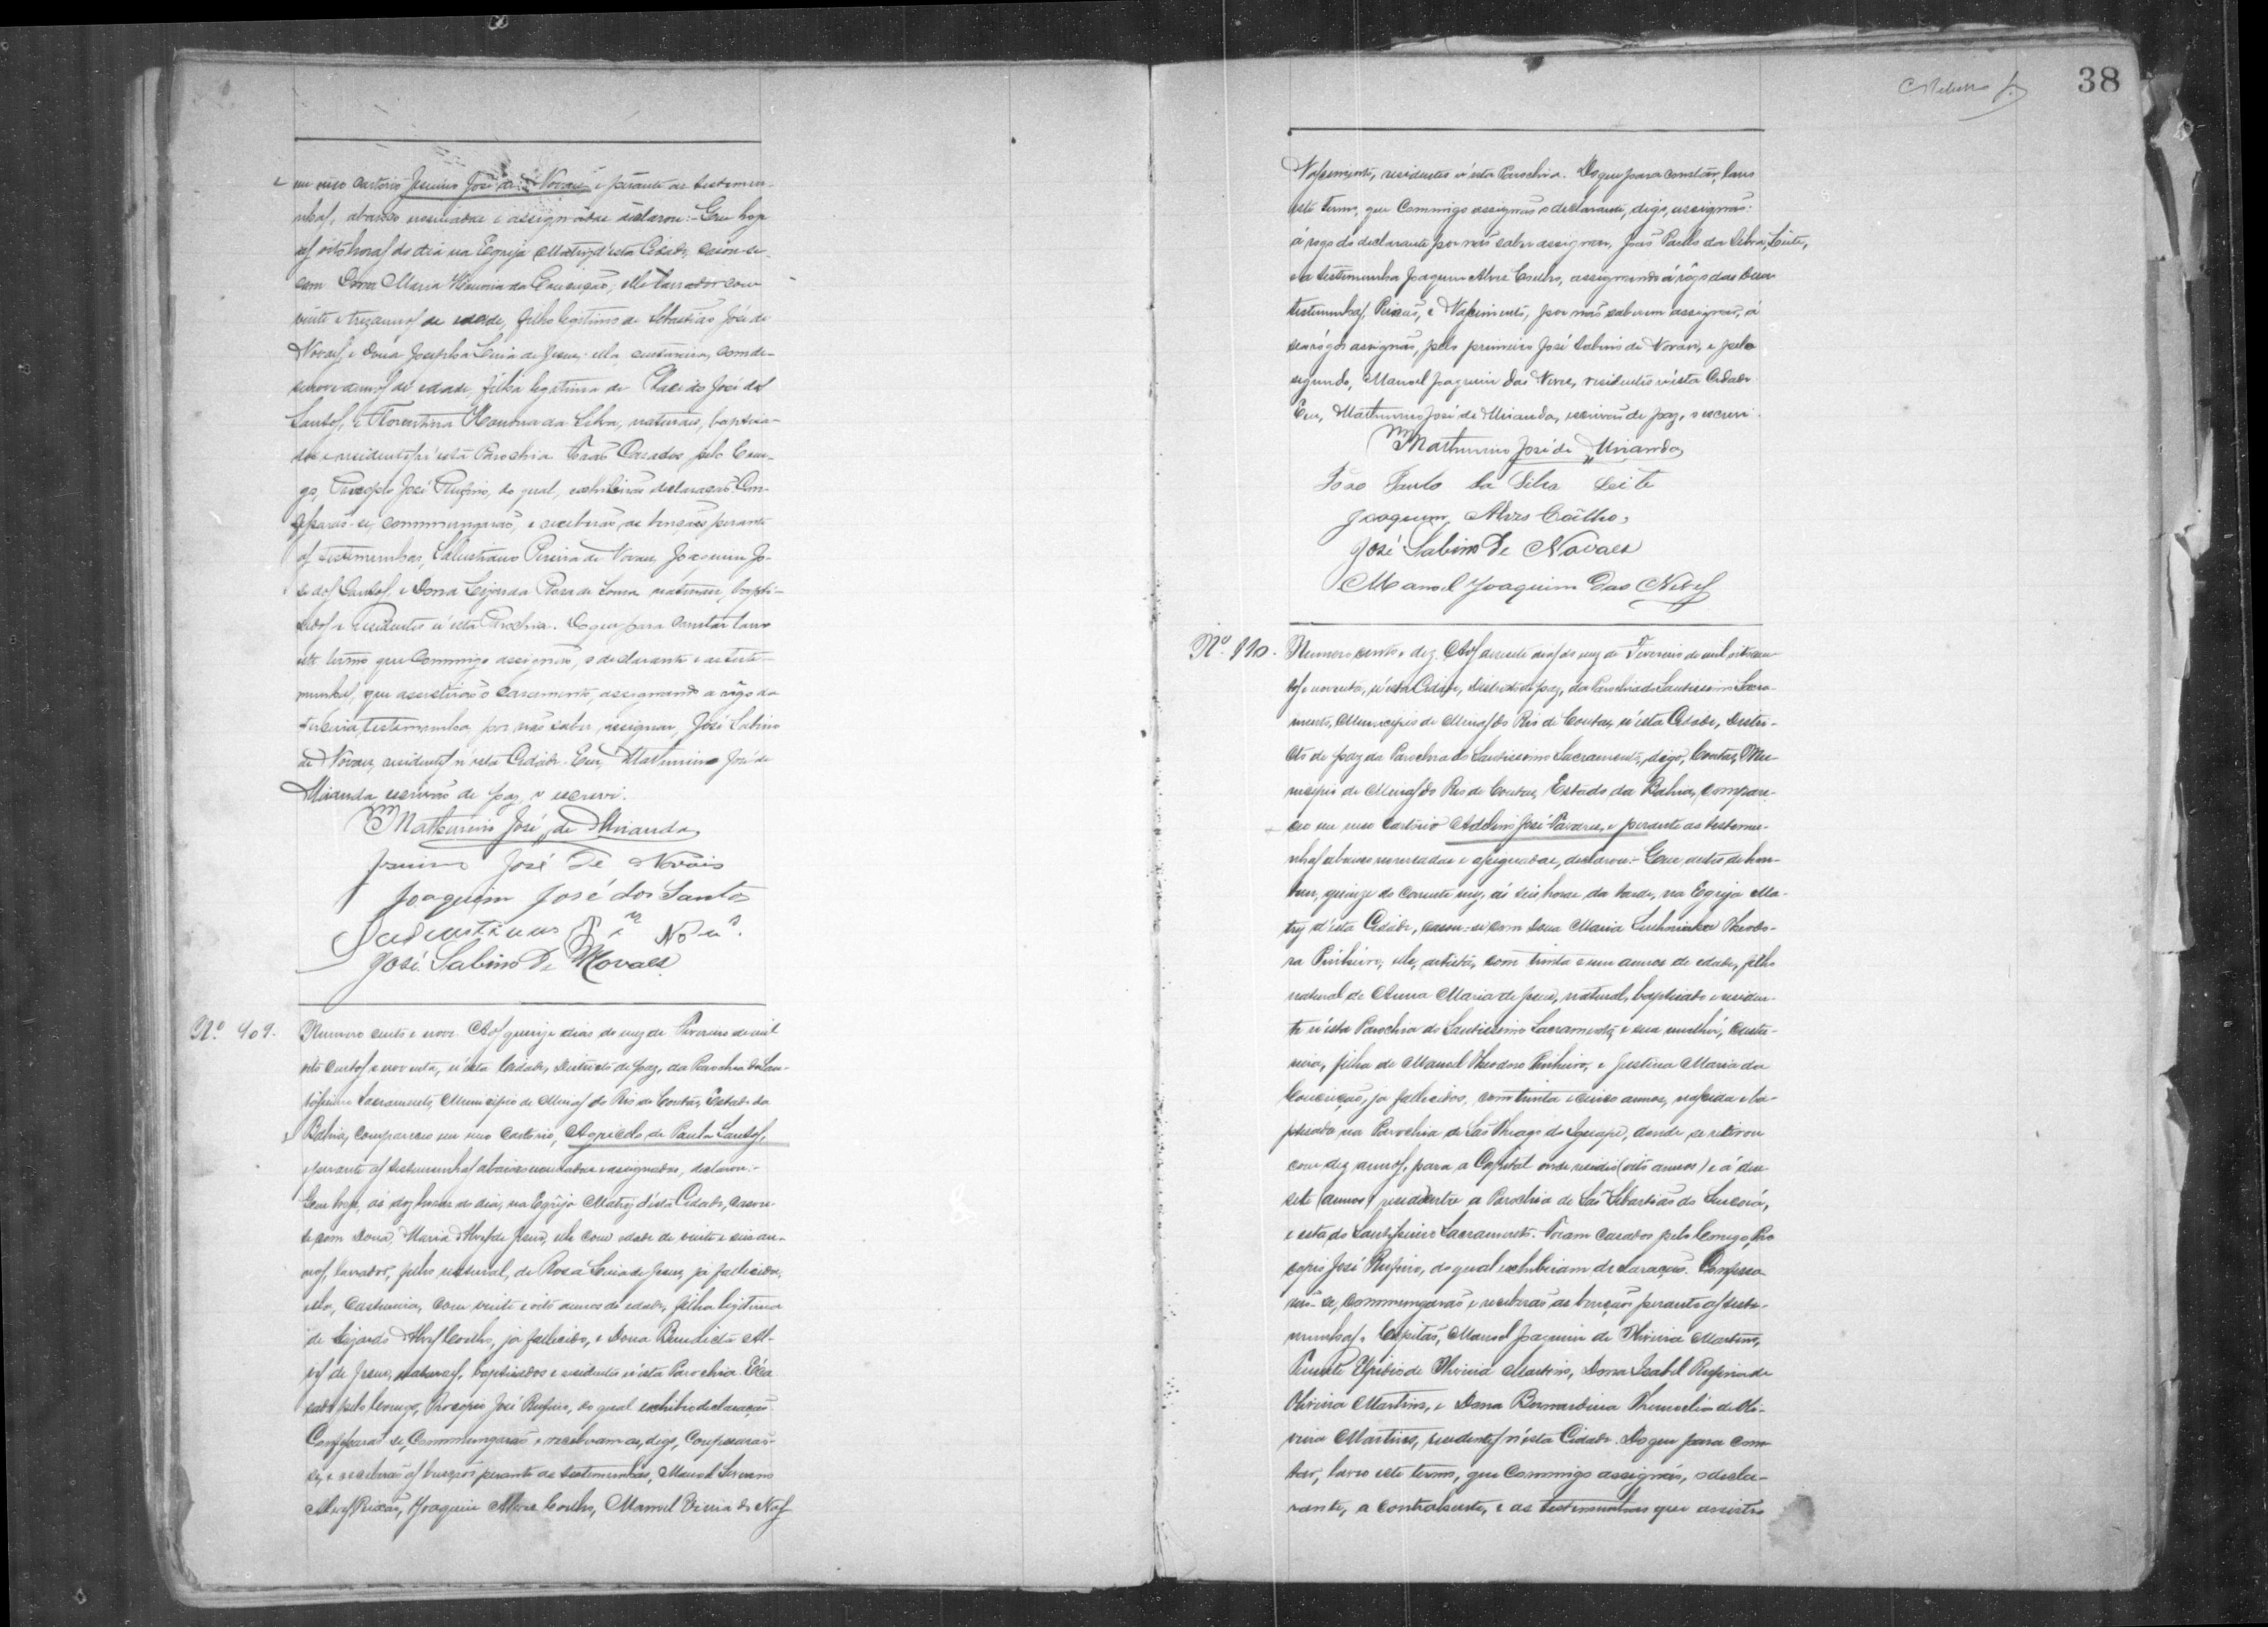 em meo cartorio Jesuino José de Novaes e perante as testemu-
nhas, abaixo nomiadas e assignadas declarou: Que hoje
as oito horas do dia na Egreja Matriz d'esta Cidade, casou-se
com Dona Maria Honoria da Conceição, elle lavrador com
vinte e trez annos de edade, filho legitimo de Sebastião José de
Novaes e Dona Josepha Luzia de Jesus: ella costureira, com de-
senove annos de edade, filha legitima de Placido José dos
Santos, e Florentina Honoria da Silva, naturaes, baptisa-
dos e residentes n'esta Parochia. Forão Casados pelo Cone-
go, Procopio José Rufino, do qual, exhibirão declaração. Con-
fessarão-se, commungarão, e receberão as bençãos perante
as testemunhas, Salustiano Pereira de Novaes, Joaquim Jo-
sé dos Santos, e Dona Rosa de Souza naturaes, bapti-
sados e residentes n'esta Parochia. Do que para constar lavro
este termo que commigo assignão, o declarante e as teste-
munhas, que assistirão o casamento, assignando a rogo da
terceira testemunha por não saber assignar, José Sabino
de Novaes, residentes n'esta Cidade. Eu, Mathurino José de
Miranda, escrivão de paz, o escrevi.
Mathurino José de Miranda
José de Novais
Joaquim José dos Santos
José Sabino De Novaes
Nº 109. Numero cento e nove. Aos quinze dias do mez de Fevereiro de mil
oito centos e noventa, n'esta Cidade, Districto de paz, da Parochia do San-
tissimo Sacramento, Municipio de Minas do Rio de Contas, Estado da
Bahia, compareceo em meo Cartorio, Agricola de Paula Santos,
e perante as testemunhas abaixo nomeadas e assignadas, declarou:-
Que hoje, ás dez horas do dia, na Egreja Matriz d'esta Cidade, casou-
se com Dona, Maria Alves de Jesus, elle com edade de vinte e seis an-
nos, lavrador, filho natural, de Rosa Luzia de Jesus, já fallecida,
ella, Custureira, com vinte e oito annos de edade, filha legitima
de Alves Coelho, já fallecido, e Dona Benedicta Al-
ves de Jesus, naturaes, baptisados e residentes n'esta Parochia. Foi ca-
sado pelo Conego, Procopio José Rufino, do qual exhibio declaração.
Confessarão se, Commungarão e receberam as, digo, Confessarão-
se, e receberão as bençãos perante as testemunhas, Manoel
Alves Peixão, Joaquim Alves Coelho, Manoel Vieira do Nas-
38
Nascimento, residentes n'esta Parochia. Do que para constar, lavro
este termo, que Commigo assignão o declarante, digo, assignão:
á rogo do declarante por não saber assignar, João Paulo da Silva Leite,
e a testemunha Joaquim Alves Coelho, assignando á rôgo das duas
testemunhas, Peixão, e Nascimento, por não saberem assignar, á
seo rôgo assignão, pelo primeiro José Sabino de Novaes, e pelo
segundo, Manoel Joaquim das Neves, residentes n'esta Cidade.
Eu, Mathurino José de Miranda, escrivão de paz, o escrevi.
Mathurino José de Miranda
João Paulo da Silva Leite
Joaquim Alves Coêlho,
José Sabino De Novaes
Manoel Joaquim Das Neves
Nº 110. Numero cento e dez. Aos desesete dias do mez de Fevereiro de mil oito cen-
tos e noventa, n'esta Cidade, Districto de paz, da Parochia do Santissimo Sacra-
mento, Municipio de Minas do Rio de Contas, n'esta Cidade, Distri-
cto de paz da Parochia do Santissimo Sacramento, digo, Contas, Mu-
nicipio de Minas do Rio de Contas, Estado da Bahia, compare-
ceo em meo Cartorio Adelino José Tavares, e perante as testemu-
nhas abaixo nomeadas e assignadas, declarou:- Que, antes de hon-
tem, quinze do corrente mez, ás seis horas da tarde, na Egreja Ma-
triz d'esta Cidade, casou-se com Dona Maria Theodo-
ra Pinheiro, elle, artista, com trinta e um annos de edade, filho
natural de Anna Maria de Jesus, natural, baptisado e residen-
te n'esta Parochia do Santissimo Sacramento, e sua mulhér, custu-
reira, filha de Manoel Theodoro Pinheiro, e Justina Maria da
Conceição, já fallecidos, com trinta e cinco annos, nascida e ba-
ptisada na Parochia de São Thiago do Iguape, donde se retirou
com dez annos, para a Capital onde residio (oito annos) e á dese-
sete (annos) reside entre a Parochia de São Sebastião do Sincorá,
e esta do Santissimo Sacramento. Foram casados pelo Conego, Pro
copio José Rufino, do qual exhibiram declaração. Confessa
rão-se, commungarão e receberão as bençãos perante as teste-
munhas, Capitão, Manoel Joaquim de Oliveira Martins,
Tenente de Oliveira Martins, Dona Izabel Rufina de
Oliveira Martins, e Dona Bernardina de Oli-
veira Martins, residentes n'esta Cidade. Do que para cons
tar, lavro este termo, que Commigo assignão, o decla-
rante, a contrahente, e as testemunhas que assisti